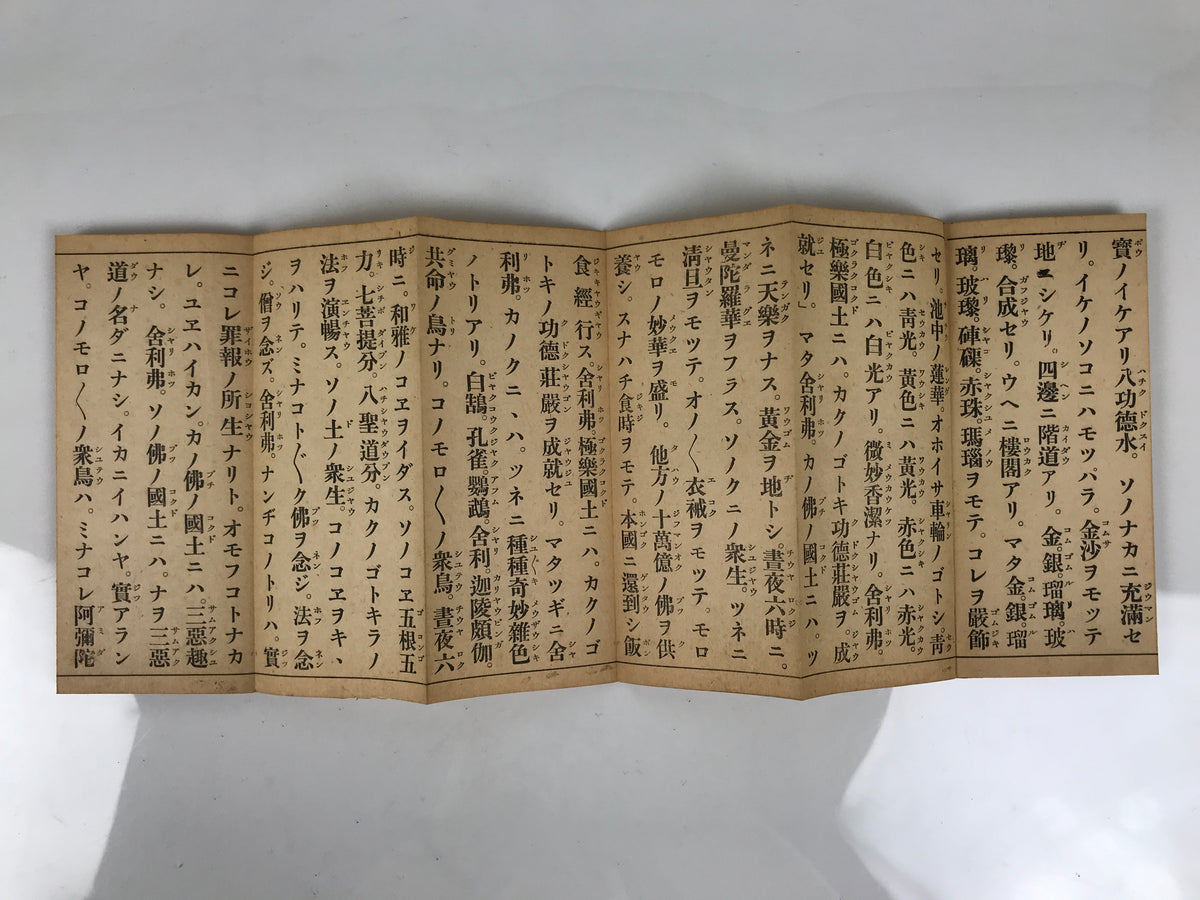 寶ノイケアリ八功德水。ソノナカニ充滿セ
リ。イケノソコニハモツパラ。金沙ヲモツテ
地ニシケリ。四邊ニ階道アリ。金。銀。瑠璃。玻
瓈。合成セリ。ウヘニ樓閣アリ。マタ金。銀。瑠
璃。玻瓈。硨磲。赤珠。瑪瑙ヲモテ。コレヲ嚴飾
セリ。池中ノ蓮華。オホイサ車輪ノゴトシ。靑
色ニハ靑光。黃色ニハ黃光。赤色ニハ赤光。
白色ニハ白光アリ。微妙香潔ナリ。舍利弗。
極樂國土ニハ。カクノゴトキ功德莊嚴ヲ。成
就セリ」マタ舍利弗。カノ佛ノ國土ニハ。ツ
ネニ天樂ヲナス。黃金ヲ地トシ。晝夜六時ニ。
曼陀羅華ヲフラス。ソノクニノ衆生。ツネニ
淸旦ヲモツテ。オノ〱衣裓ヲモツテ。モロ
モロノ妙華ヲ盛リ。他方ノ十萬億ノ佛ヲ供
養シ。スナハチ食時ヲモテ。本國ニ還到シ飯
食經行ス。舍利弗。極樂國土ニハ。カクノゴ
トキノ功德莊嚴ヲ成就セリ。マタツギニ舍
利弗。カノクニヽハ。ツネニ種種奇妙雜色
ノトリアリ。白鵠。孔雀。鸚鵡。舍利。迦陵頻伽。
共命ノ鳥ナリ。コノモロ〱ノ衆鳥。晝夜六
時ニ。和雅ノコヱヲイダス。ソノコヱ五根五
力。七菩提分。八聖道分。カクノゴトキラノ
法ヲ演暢ス。ソノ土ノ衆生。コノコヱヲキヽ
ヲハリテ。ミナコト〲ク佛ヲ念ジ。法ヲ念
ジ。僧ヲ念ズ。舍利弗。ナンヂコノトリハ。實
ニコレ罪報ノ所生ナリト。オモフコトナカ
レ。ユヱハイカン。カノ佛ノ國土ニハ。三惡趣
ナシ。舍利弗。ソノ佛ノ國土ニハ。ナヲ三惡
道ノ名ダニナシ。イカニイハンヤ。實アラン
ヤ。コノモロ〱ノ衆鳥ハ。ミナコレ阿彌陀